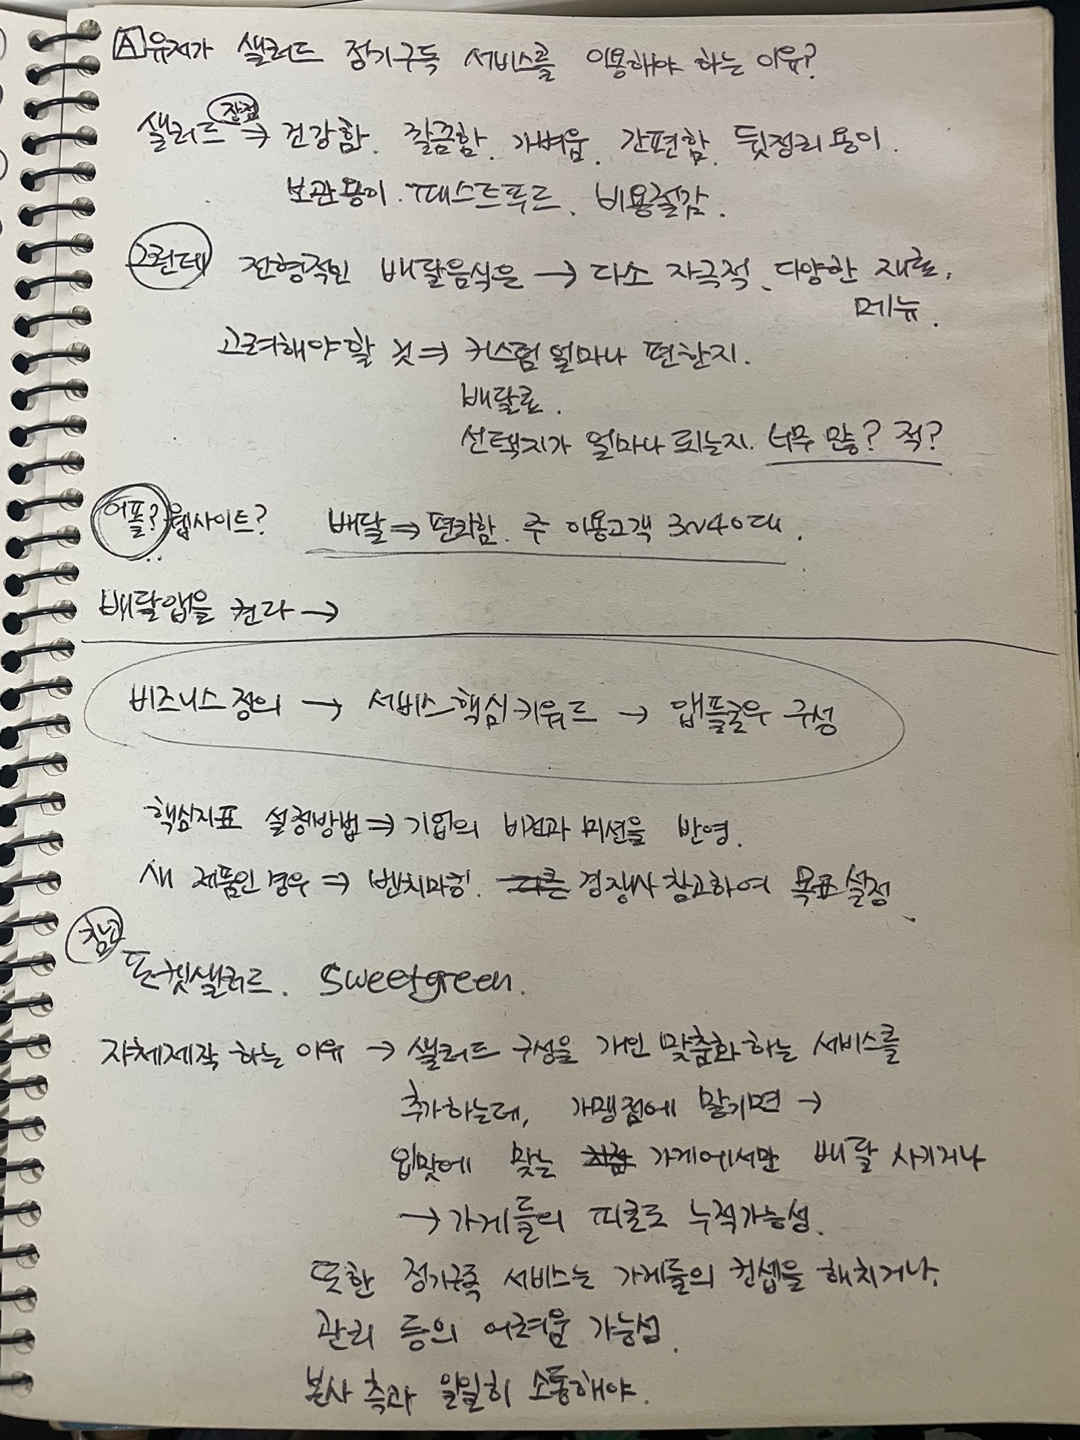 A 유저가 샐러드 정기구독 서비스를 이용해야 하는 이유?
샐러드 장점 → 건강함. 깔끔함. 가벼움. 간편함. 뒷정리 용이.
보관용이. 패스트푸드. 비용절감.
그런데 전형적인 배달음식은 → 다소 자극적. 다양한 재료,
메뉴.
고려해야 할 것 ⇒ 커스텀 얼마나 편한지.
배달료.
선택지가 얼마나 되는지. 너무 많? 적?
어플? 웹사이트? 배달 ⇒ 편리함. 주 이용고객 3~40대.
배달앱을 켠다 →
비즈니스 정의 → 서비스 핵심 키워드 → 앱플로우 구성
핵심지표 설정방법 ⇒ 기업의 비전과 미션을 반영.
새 제품인 경우 ⇒ 벤치마킹. 다른 경쟁사 참고하여 목표 설정.
참고
포켓샐러드. Sweetgreen.
자체제작 하는 이유 → 샐러드 구성을 개인 맞춤화 하는 서비스를
추가하는데, 가맹점에 맡기면 →
입맛에 맞는 가게에서만 배달 시키거나
→ 가게들의 피로도 누적가능성.
또한 정기구독 서비스는 가게들의 컨셉을 해치거나,
관리 등의 어려움 가능성.
본사 측과 일일히 소통해야.